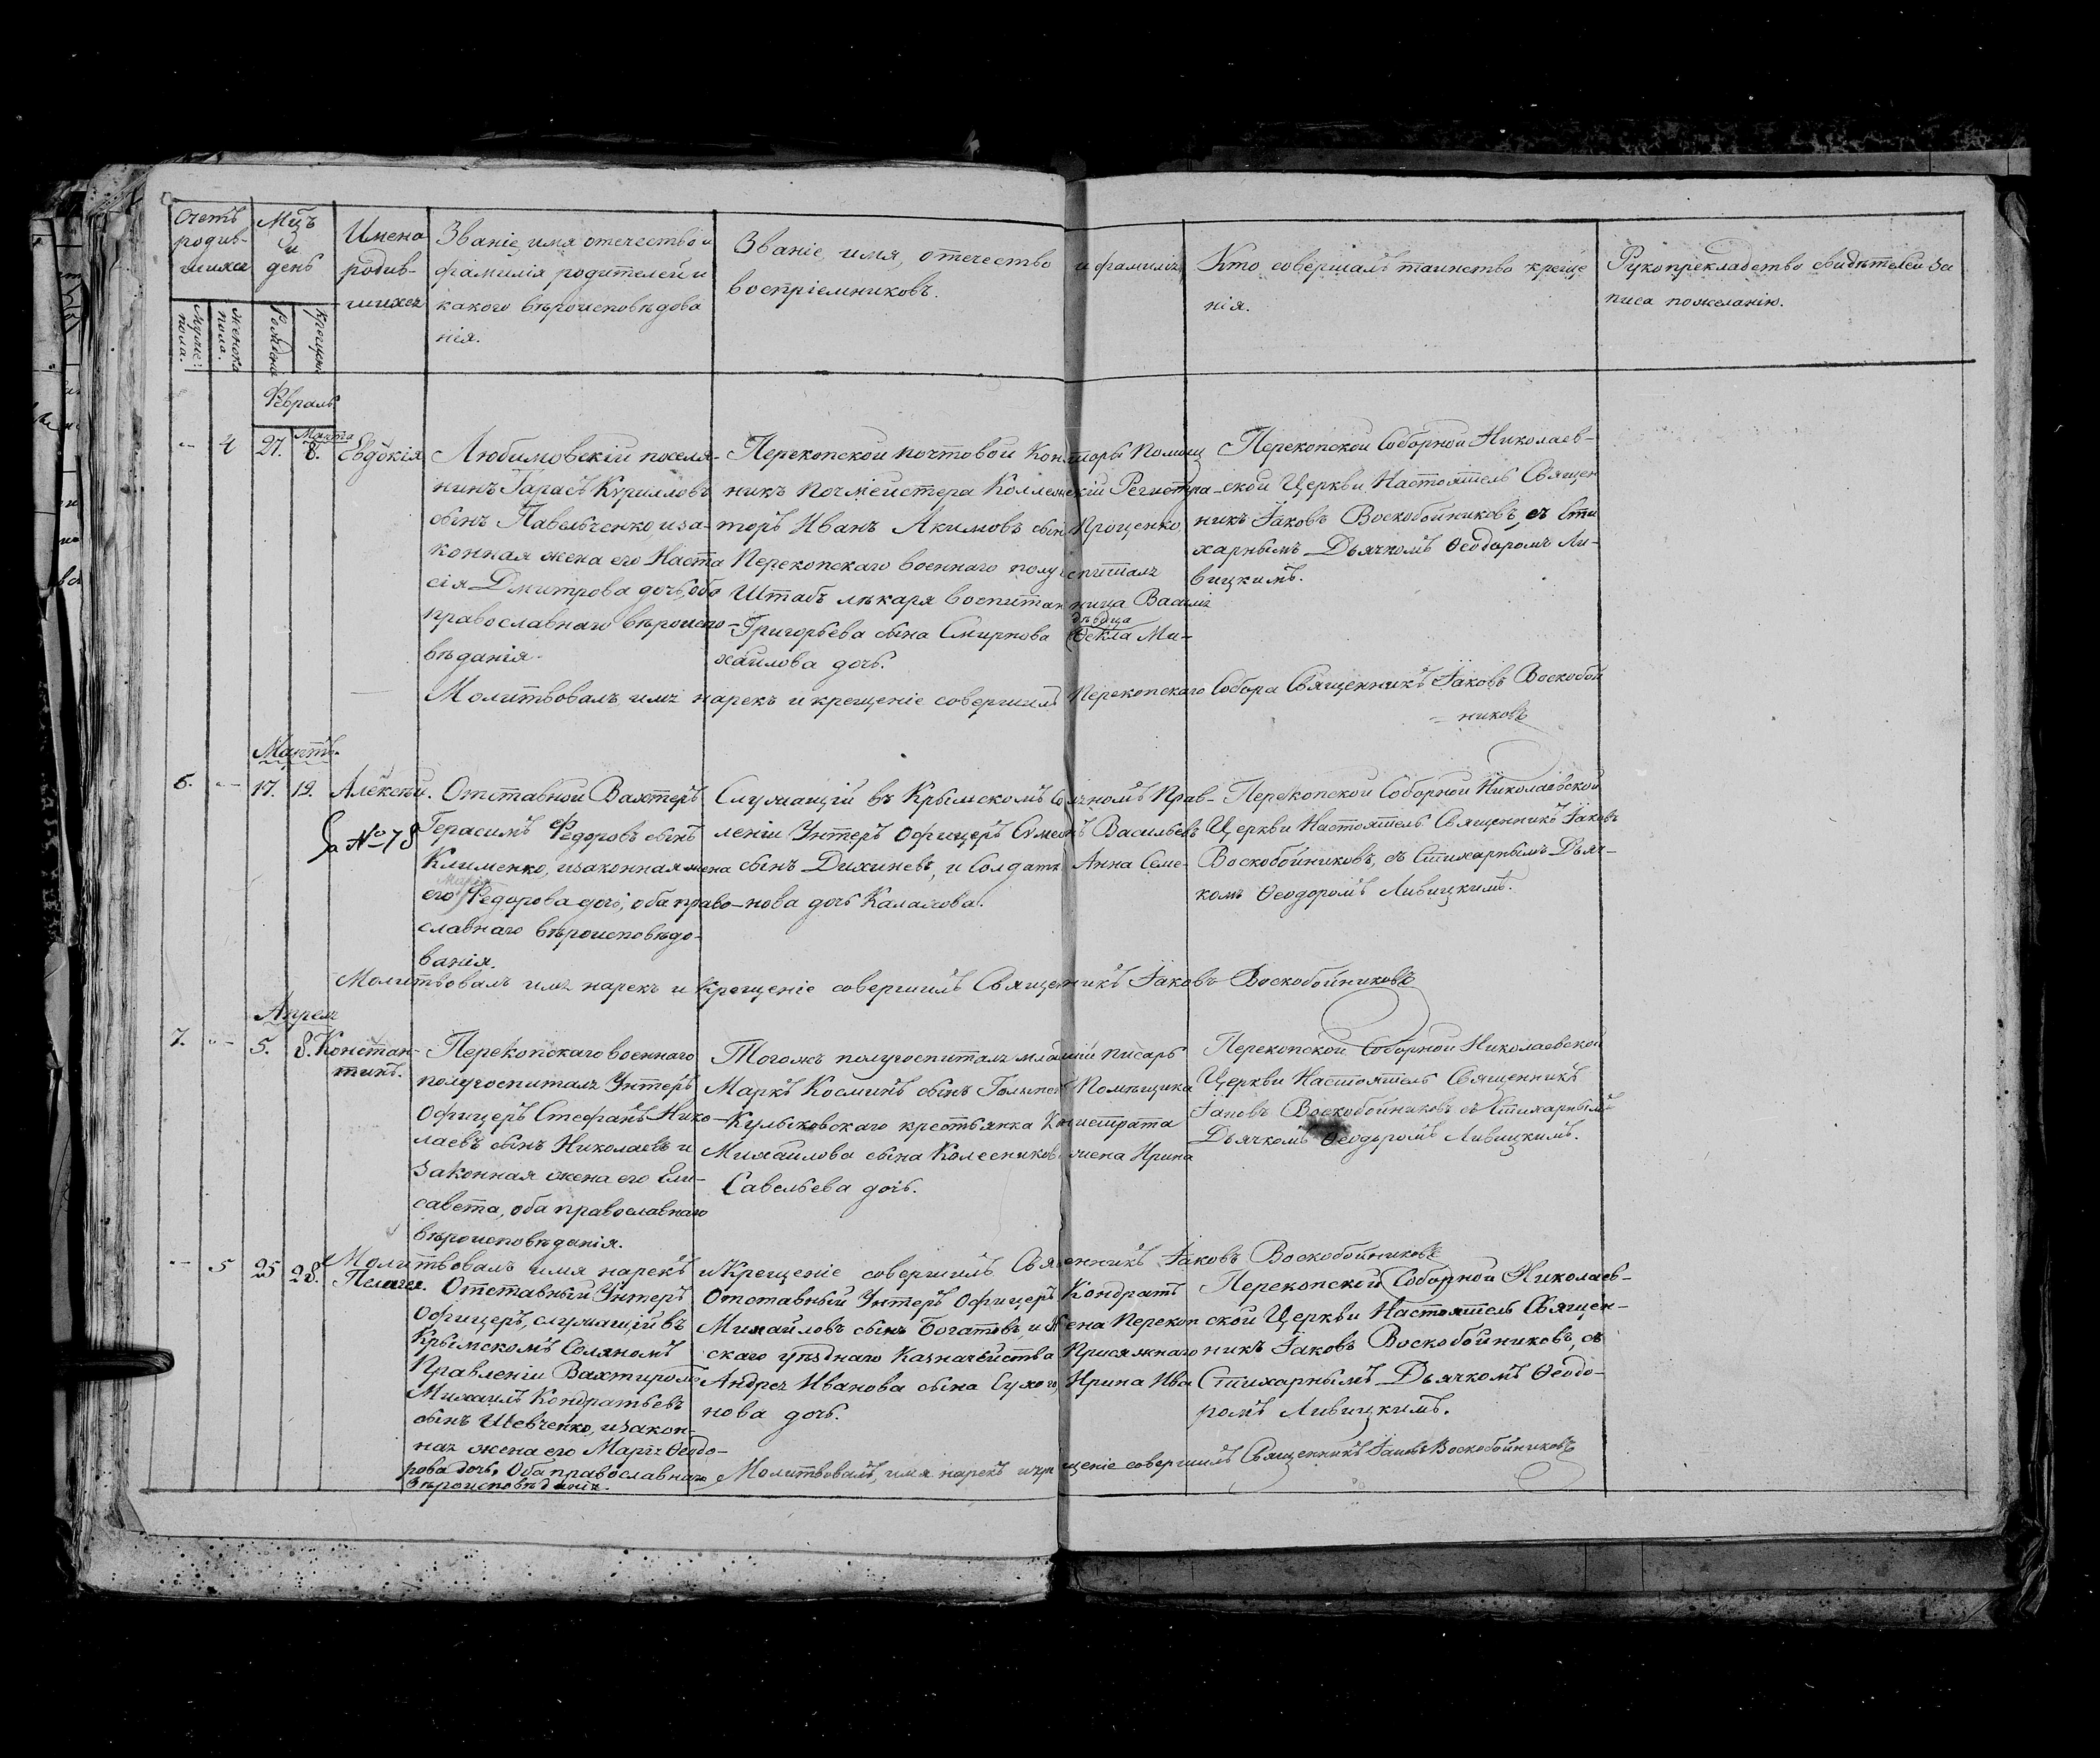 Счетъ
родив-
шихся
Мцъ
и
день
Имена
родив-
шихся
Званіе, имя отечество и
фамилія родителей и
какого вѣроисповѣдова
нія.
Званіе, имя, отечество и фамилія
воспріемниковъ.
Кто совершалъ таинство креще
нія.
Рукоприкладство свидѣтелей за
писа по желанію.
Муже:
пола.
женска
пола.
Рожденія
Крещенія
Февраль
Марта
- 4 27. 8. Евдокія
Любимовскій поселя-
нинъ Тарасъ Кириловъ
сынъ Павельченко, и за-
конная жена его Наста
сія Дмитрова дочь, оба
православнаго вѣроиспо-
вѣданія.
Перекопской почтовой Конторы Помощ
никъ Почмейстера Коллежскій Регистра-
торъ Иванъ Акимовъ сынъ Проценко,
Перекопскаго военнаго полугоспиталя
Штабъ лѣкаря воспитанница Василія
дѣвица
Григорьева сына Смирнова Ѳекла Ми-
хайлова дочь.
Перекопской Соборной Николаев-
ской Церкви Настоятель Священ
никъ Іаковъ Воскобойниковъ, съ Сти
харнымъ Дьячкомъ Ѳеодоромъ Ли-
вицкимъ.
Молитвовалъ, имя нарекъ и крещеніе совершилъ Перекопскаго Собора Священникъ Іаковъ Воскобой
никовъ
Мартъ.
6. - 17. 19. Алексѣй.
За № 78
Отставной Вахтеръ
Герасимъ Федоровъ сынъ
Клименко, и законная жена
Марія
его Федорова дочь, оба право-
славнаго вѣроисповѣдо-
ванія.
Служащій въ Крымскомъ Соляномъ Прав-
леніи Унтеръ Офицеръ Симеонъ Васильевъ
сынъ Дихиневъ, и Солдатка Анна Семе-
нова дочь Калачова.
Перекопской Соборной Николаевской
Церкви Настоятель Священникъ Іаковъ
Воскобойниковъ, съ Стихарнымъ Дьяч-
комъ Ѳеодоромъ Ливицкимъ.
Молитвовалъ имя нарекъ и крещеніе совершилъ Священникъ Іаковъ Воскобойниковъ
Апрель
7. - 5. 8. Констан-
тинъ.
Перекопскаго военнаго
полугоспиталя Унтеръ
Офицеръ Стефанъ Нико-
лаевъ сынъ Николаевъ и
законная жена его Ели-
савета, оба православнаго
вѣроисповѣданія.
Тогожъ полугоспиталя младшій писарь
Маркъ Косминъ сынъ Помѣщика
Кульсковскаго крестьянка
Михайлова сына Колесникова жена Ирина
Савельева дочь.
Перекопской Соборной Николаевской
Церкви Настоятель Священникъ
Іаковъ Воскобойниковъ съ Стихарнымъ
Дьячкомъ Ѳеодоромъ Ливицкимъ.
Молитвовалъ имя нарекъ и Крещеніе совершилъ Священникъ Іаковъ Воскобойниковъ
- 5 25 28. Пелагея.
Отставный Унтеръ
Офицеръ, служащій въ
Крымскомъ Соляномъ
Правленіи Вахтиромъ
Михаилъ Кондратьевъ
сынъ Шевченко, и закон-
ная жена его Марія Ѳеодо-
рова дочь, Оба православнаго
Вѣроисповѣданія.
Отставный Унтеръ Офицеръ Кондратъ
Михайловъ сынъ Богатовъ, и Жена Перекоп
скаго уѣзднаго Казначейства Присяжнаго
Андрея Иванова сына Сухого, Ирина Ива
нова дочь.
Перекопской Соборной Николаев-
ской Церкви Настоятель Священ-
никъ Іаковъ Воскобойниковъ, съ
Стихарнымъ Дьячкомъ Ѳеодо-
ромъ Ливицкимъ.
Молитвовалъ, имя нарекъ и крещеніе совершилъ Священникъ Іаковъ Воскобойниковъ